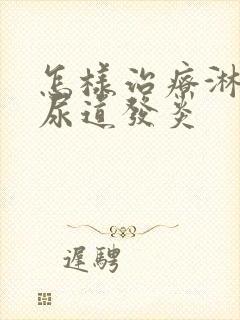 怎樣治療淋
尿道發炎
遲騁